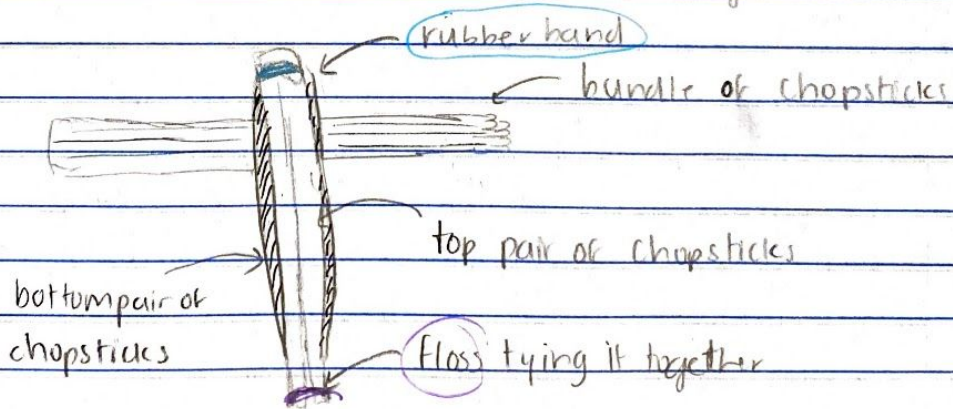 rubber band
bundle of chopsticks
top pair of chopsticks
bottom pair of
chopsticks
floss tying it together